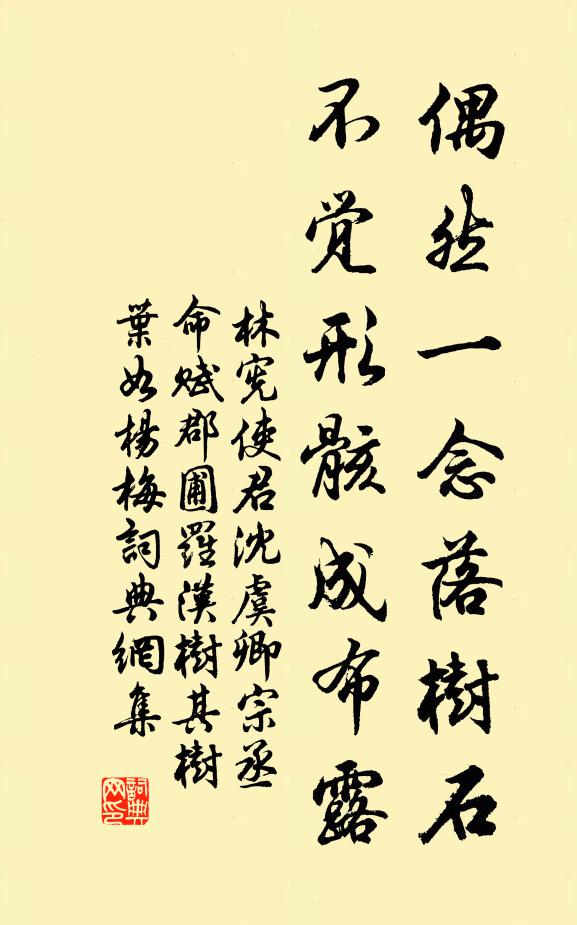 偶然一念落樹石
不覚形骸成布露
林宪使君沈虞卿宗丞
命赋郡圃羅漢樹其樹
葉如楊梅詞典網集
詞典网印